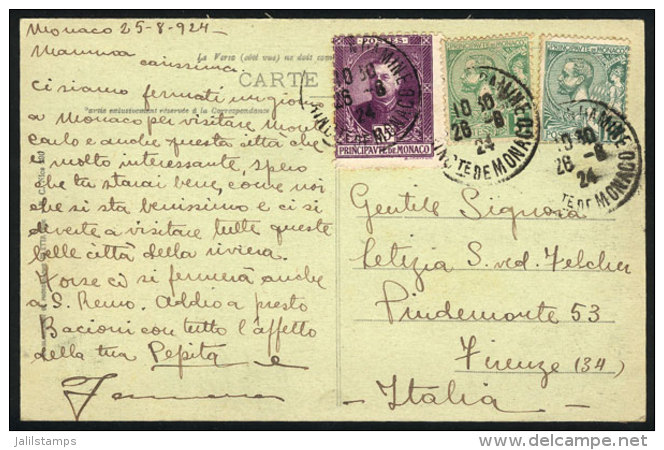 Monaco 25-8-924-
Mamma
carissima
Ci siamo fermati un giorno
a Monaco per visitare Monte
Carlo e anche questa città che
è molto interessante, spero
che tu starai bene, come noi
che si sta benissimo e ci si
diverte a visitare tutte queste
belle città della riviera.
Forse ci si fermerà anche
a S. Remo. Addio a presto
Bacioni con tutto l'affetto
della tua Pepita e
CARTE
Partie exclusivement réservée à la Correspondance
POSTES
PRINCIPAUTÉ DE MONACO
10 30
26 -8
24
PRINCTE DE MONACO
10 30
26 -8
24
PRINCTE DE MONACO
PRINCIPAUTÉ DE MONACO
10 30
26 -8
24
TE DE MONACO
Gentile Signora
Letizia S. ved. Felcher
Pindemonte 53
Firenze (34)
Italia
jalilstamps
delcampe.net